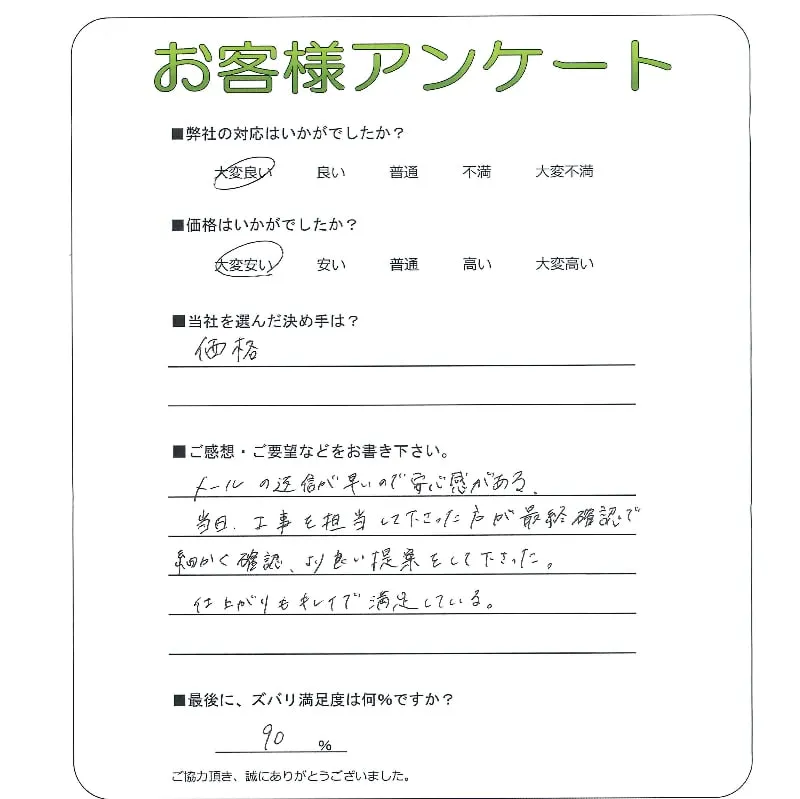 お客様アンケート
■弊社の対応はいかがでしたか？
大変良い 良い 普通 不満 大変不満
■価格はいかがでしたか？
大変安い 安い 普通 高い 大変高い
■当社を選んだ決め手は？
価格
■ご感想・ご要望などをお書き下さい。
メールの送信が早いので安心感がある。
当日、工事を担当して下さった方が最終確認で
細かく確認、より良い提案をして下さった。
仕上がりもキレイで満足している。
■最後に、ズバリ満足度は何％ですか？
90 ％
ご協力頂き、誠にありがとうございました。